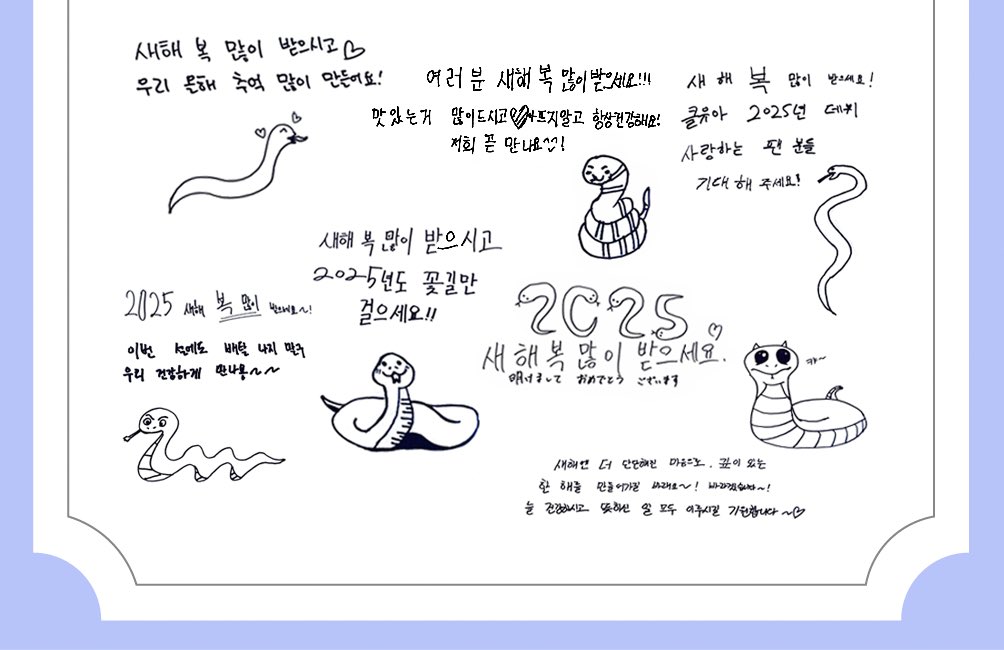 새해 복 많이 받으시고♡
우리 올해 추억 많이 만들어요!
여러분 새해 복 많이받으세요!!!
맛있는거 많이드시고 아프지말고 항상건강해요!
저희 꼭 만나요♡!
새해 복 많이 받으세요!
클유아 2025년 데뷔
사랑하는 팬 분들
기대 해 주세요!
새해 복 많이 받으시고
2025년도 꽃길만
걸으세요!!
2025 새해 복 많이 받으세요~!
이번 설에도 배탈 나지 말구
우리 건강하게 만나용~~
2025
새해복많이 받으세요.
明けまして おめでとう ございます
캬~
새해엔 더 단단해진 마음으로, 깊이 있는
한 해를 만들어가길 바래요~! 바라겠습니다~!
늘 건강하시고 뜻하신 일 모두 이루시길 기원합니다~♡